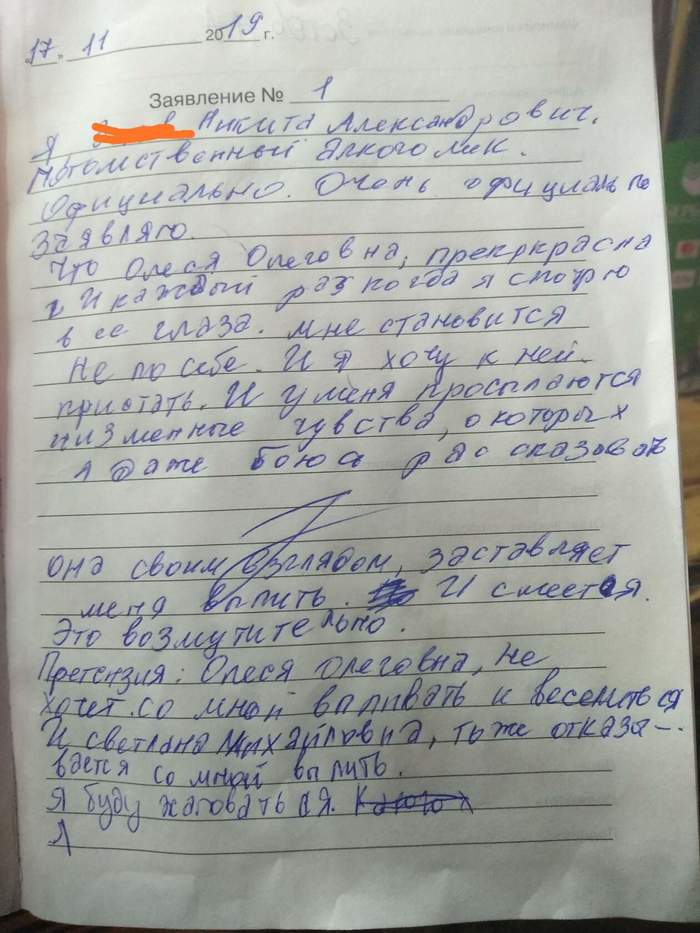 17 11 2019 г.
Заявление № 1
Я Никита Александрович,
Потомственный Алкоголик.
Официально. Очень официально
Заявляю.
Что Олеся Олеговна, прекркрасна
И каждый раз когда я смотрю
в ее глаза. мне становится
Не по себе. И я хочу к ней
пристать. И у меня просыпаются
низменные чувства, о которых
я даже боюсь рассказовать
она своим взглядом, заставляет
меня выпить. И смеется.
Это возмутительно.
Претензия: Олеся Олеговна, не
хочет со мной выпивать и веселиться
И светлана Михайловна, тоже отказы-
вается со мной выпить.
Я буду жаловаться.
Я